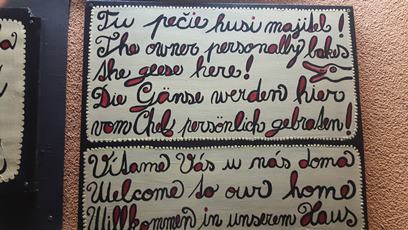 Tu pečie husi majiteľ!
The owner personally bakes
the geese here!
Die Gänse werden hier
vom Chef persönlich gebraten!
Vítame Vás u nás doma
Welcome to our home
Willkommen in unserem Haus